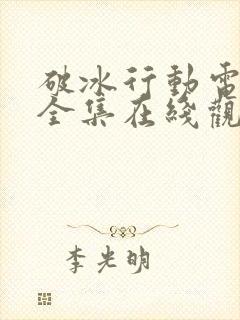 破冰行動電
全集在綫觀
李光明